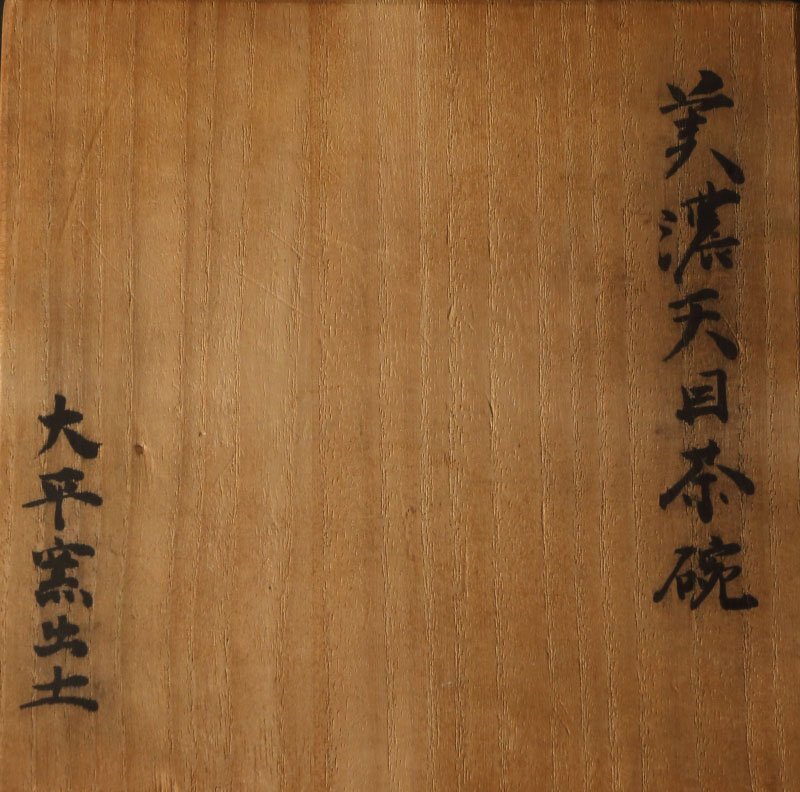 美濃天目茶碗
大平窯出土